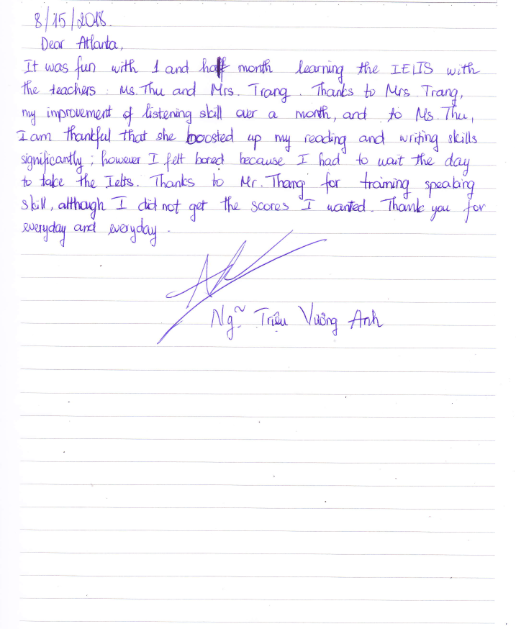 8/15/2018.
Dear Atlanta,
It was fun with 1 and half month learning the IELTS with
the teachers Ms. Thu and Mrs. Trang. Thanks to Mrs Trang,
my inprovement of listening skill over a month, and to Ms. Thu,
I am thankful that she boosted up my reading and writing skills
significantly; however I felt bored because I had to wait the day
to take the Ielts. Thanks to Mr. Thang for training speaking
skill, although I did not get the scores I wanted. Thank you for
everyday and everyday.
Ng~ Triệu Vương Anh